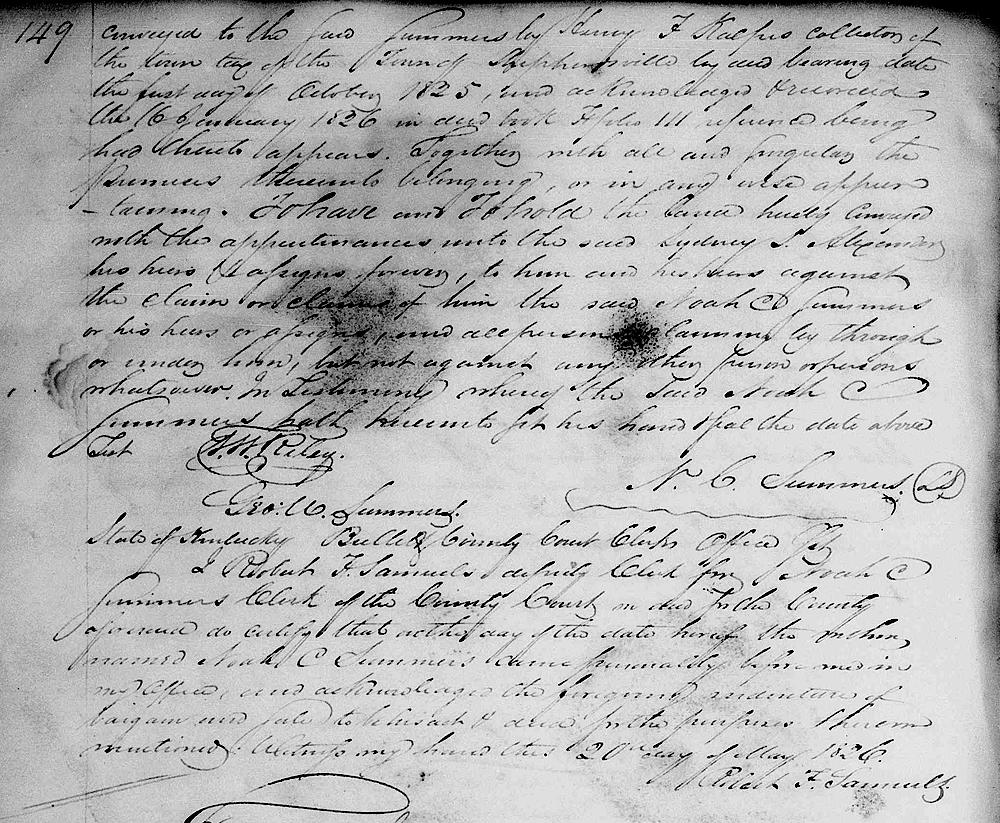 149
conveyed to the said Summers by Harvey F Kalfus collector of
the town tax of the Town of Shepherdsville by deed bearing date
the first day of October 1825, and acknowledged & recorded
the 16 January 1826 in deed book F folio 111 reference being
had thereto appears. Together with all and singular the
premises thereunto belonging, or in any wise apper
-taining. To have and To hold the land hereby conveyed
with the appurtenances unto the said Sydney S. Alexander
his heirs & assigns forever, to him and his heirs against
the claim or claims of him the said Noah C Summers
or his heirs or assigns, and all persons claiming by through
or under him, but not against any other person or persons
whatsoever. In Testimony whereof the said Noah C
Summers hath hereunto set his hand & seal the date above
Test W. W. Riley.
N. C. Summers. LS
Geo: W. Summers.
State of Kentucky Bullitt County Court Clerks Office Sct
I Robert F. Samuels deputy Clerk for Noah C
Summers Clerk of the County Court in and for the County
aforesaid do certify that on the day of the date hereof the within
named Noah C Summers came personally before me in
my Office, and acknowledged the foregoing indenture of
bargain and sale to be his act & deed for the purposes therein
mentioned. Witness my hand this 20th day of May 1826.
Robert F. Samuels.